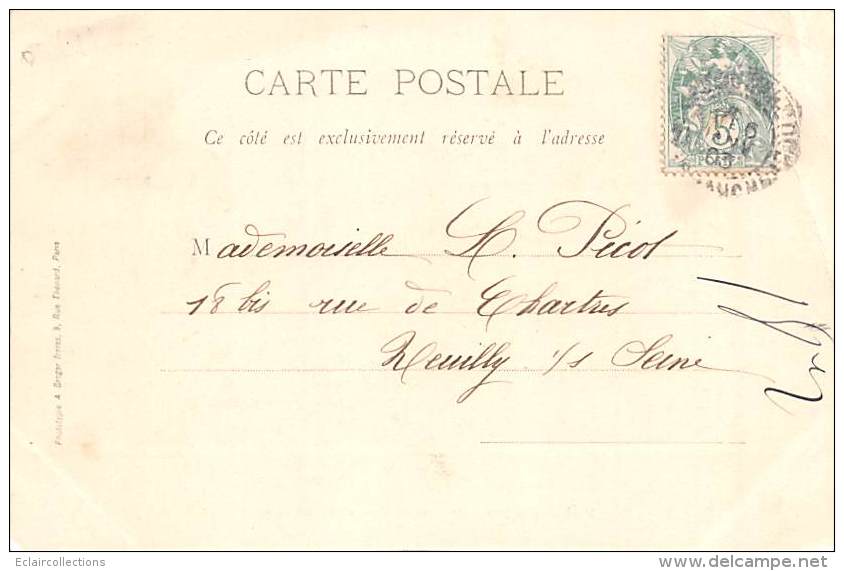 CARTE POSTALE
Ce côté est exclusivement réservé à l'adresse
5
Mademoiselle L. Picot
18 bis rue de Chartres
Neuilly s/s Seine
Phototypie A. Berger frères, 9, Rue Thénard, Paris
Eclaircollections
www.delcampe.net